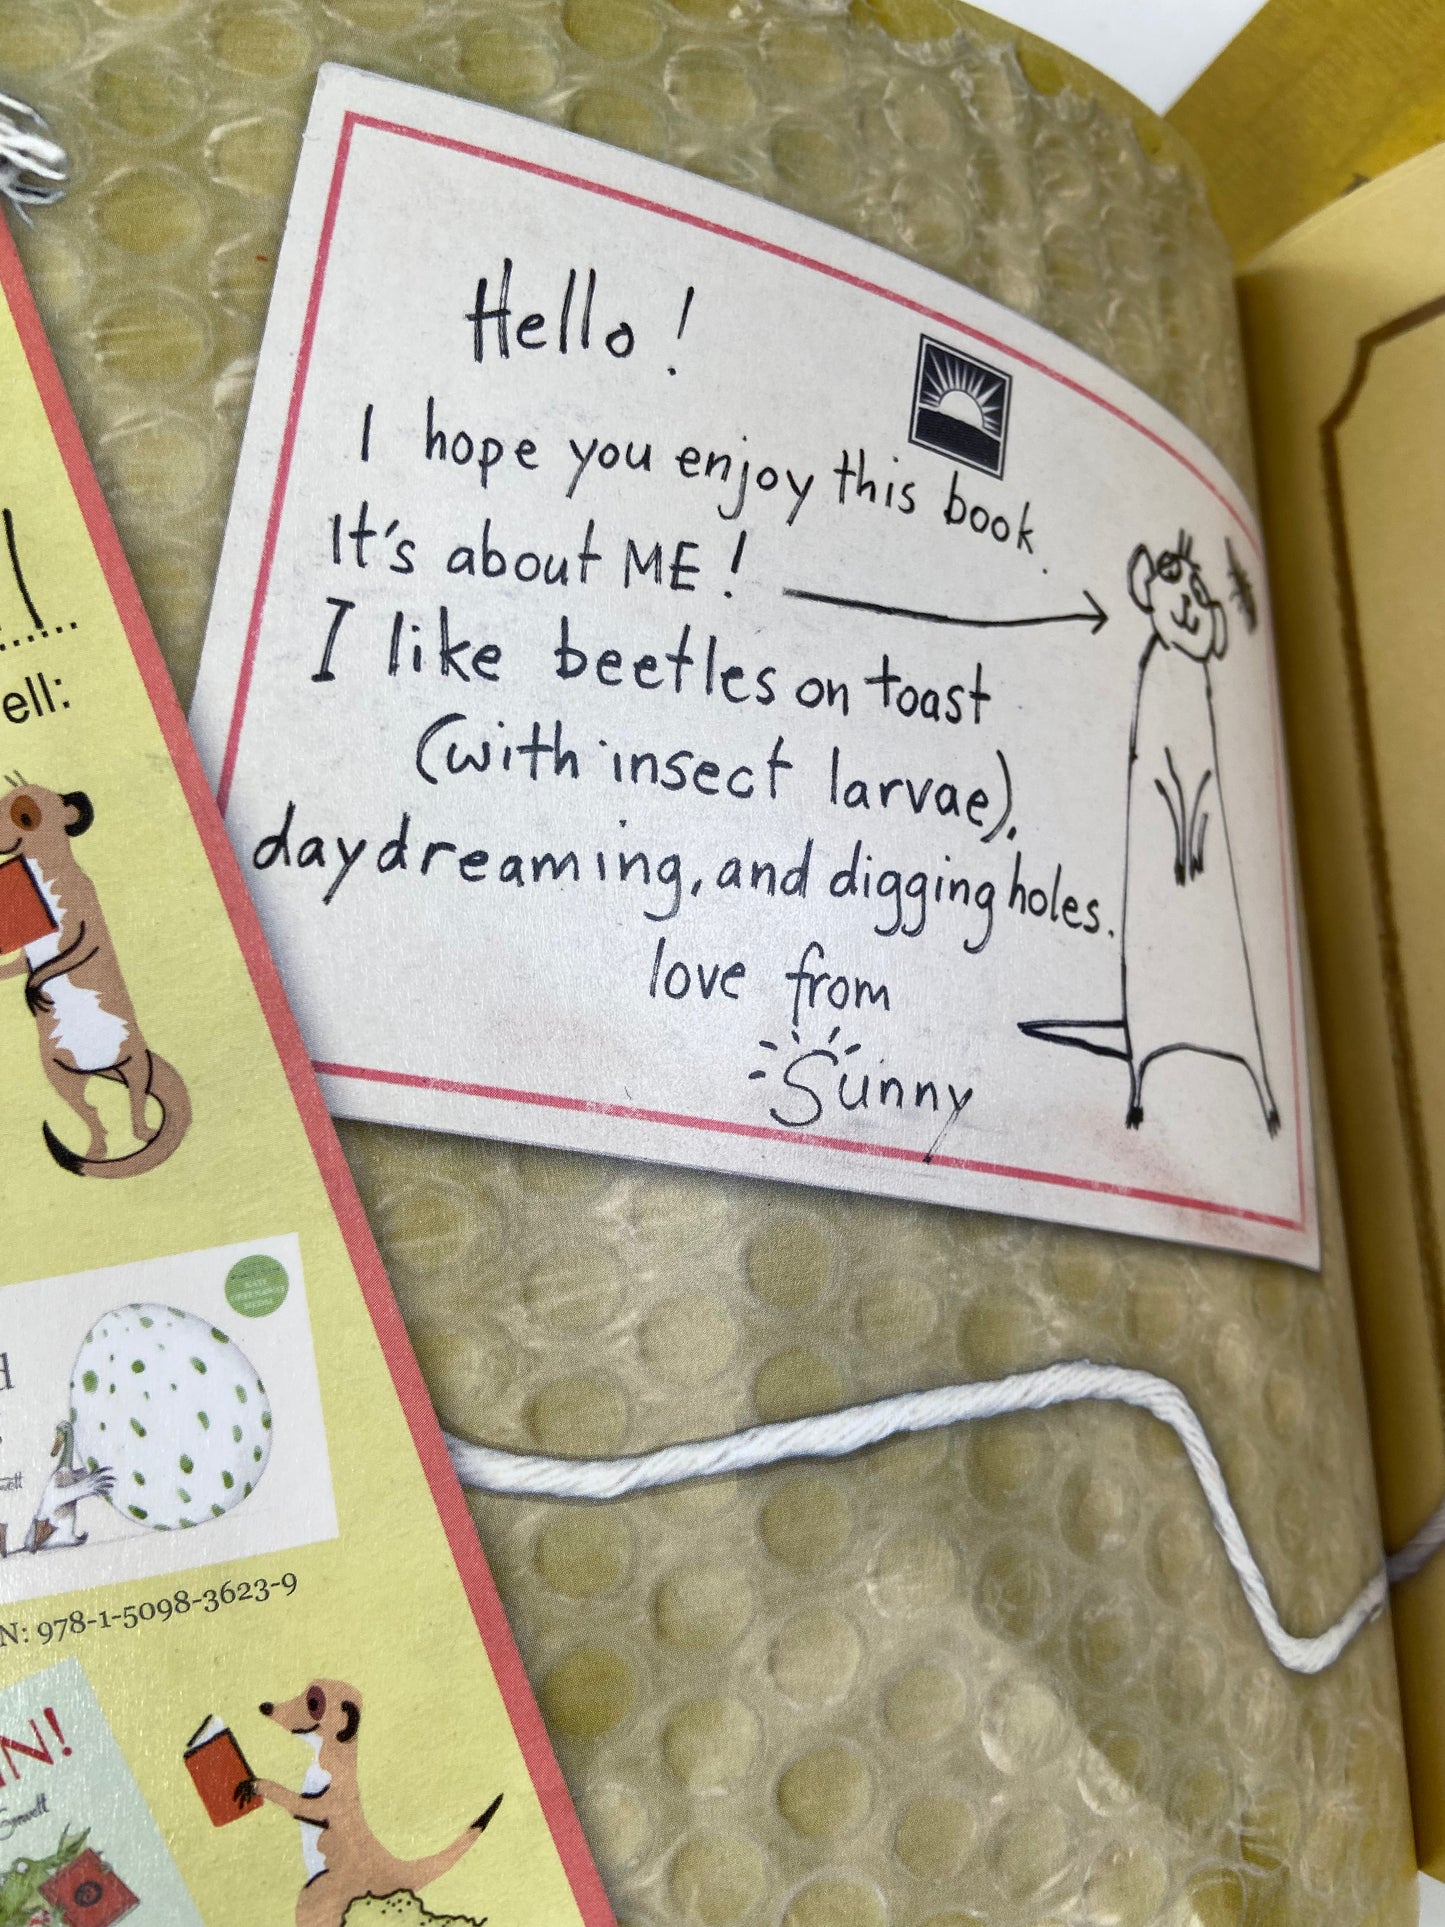 Hello!
I hope you enjoy this book.
It's about ME!
I like beetles on toast
(with insect larvae),
daydreaming, and digging holes.
love from
Sunny
ell:
KATE
GREENAWAY
MEDAL
N: 978-1-5098-3623-9
N!